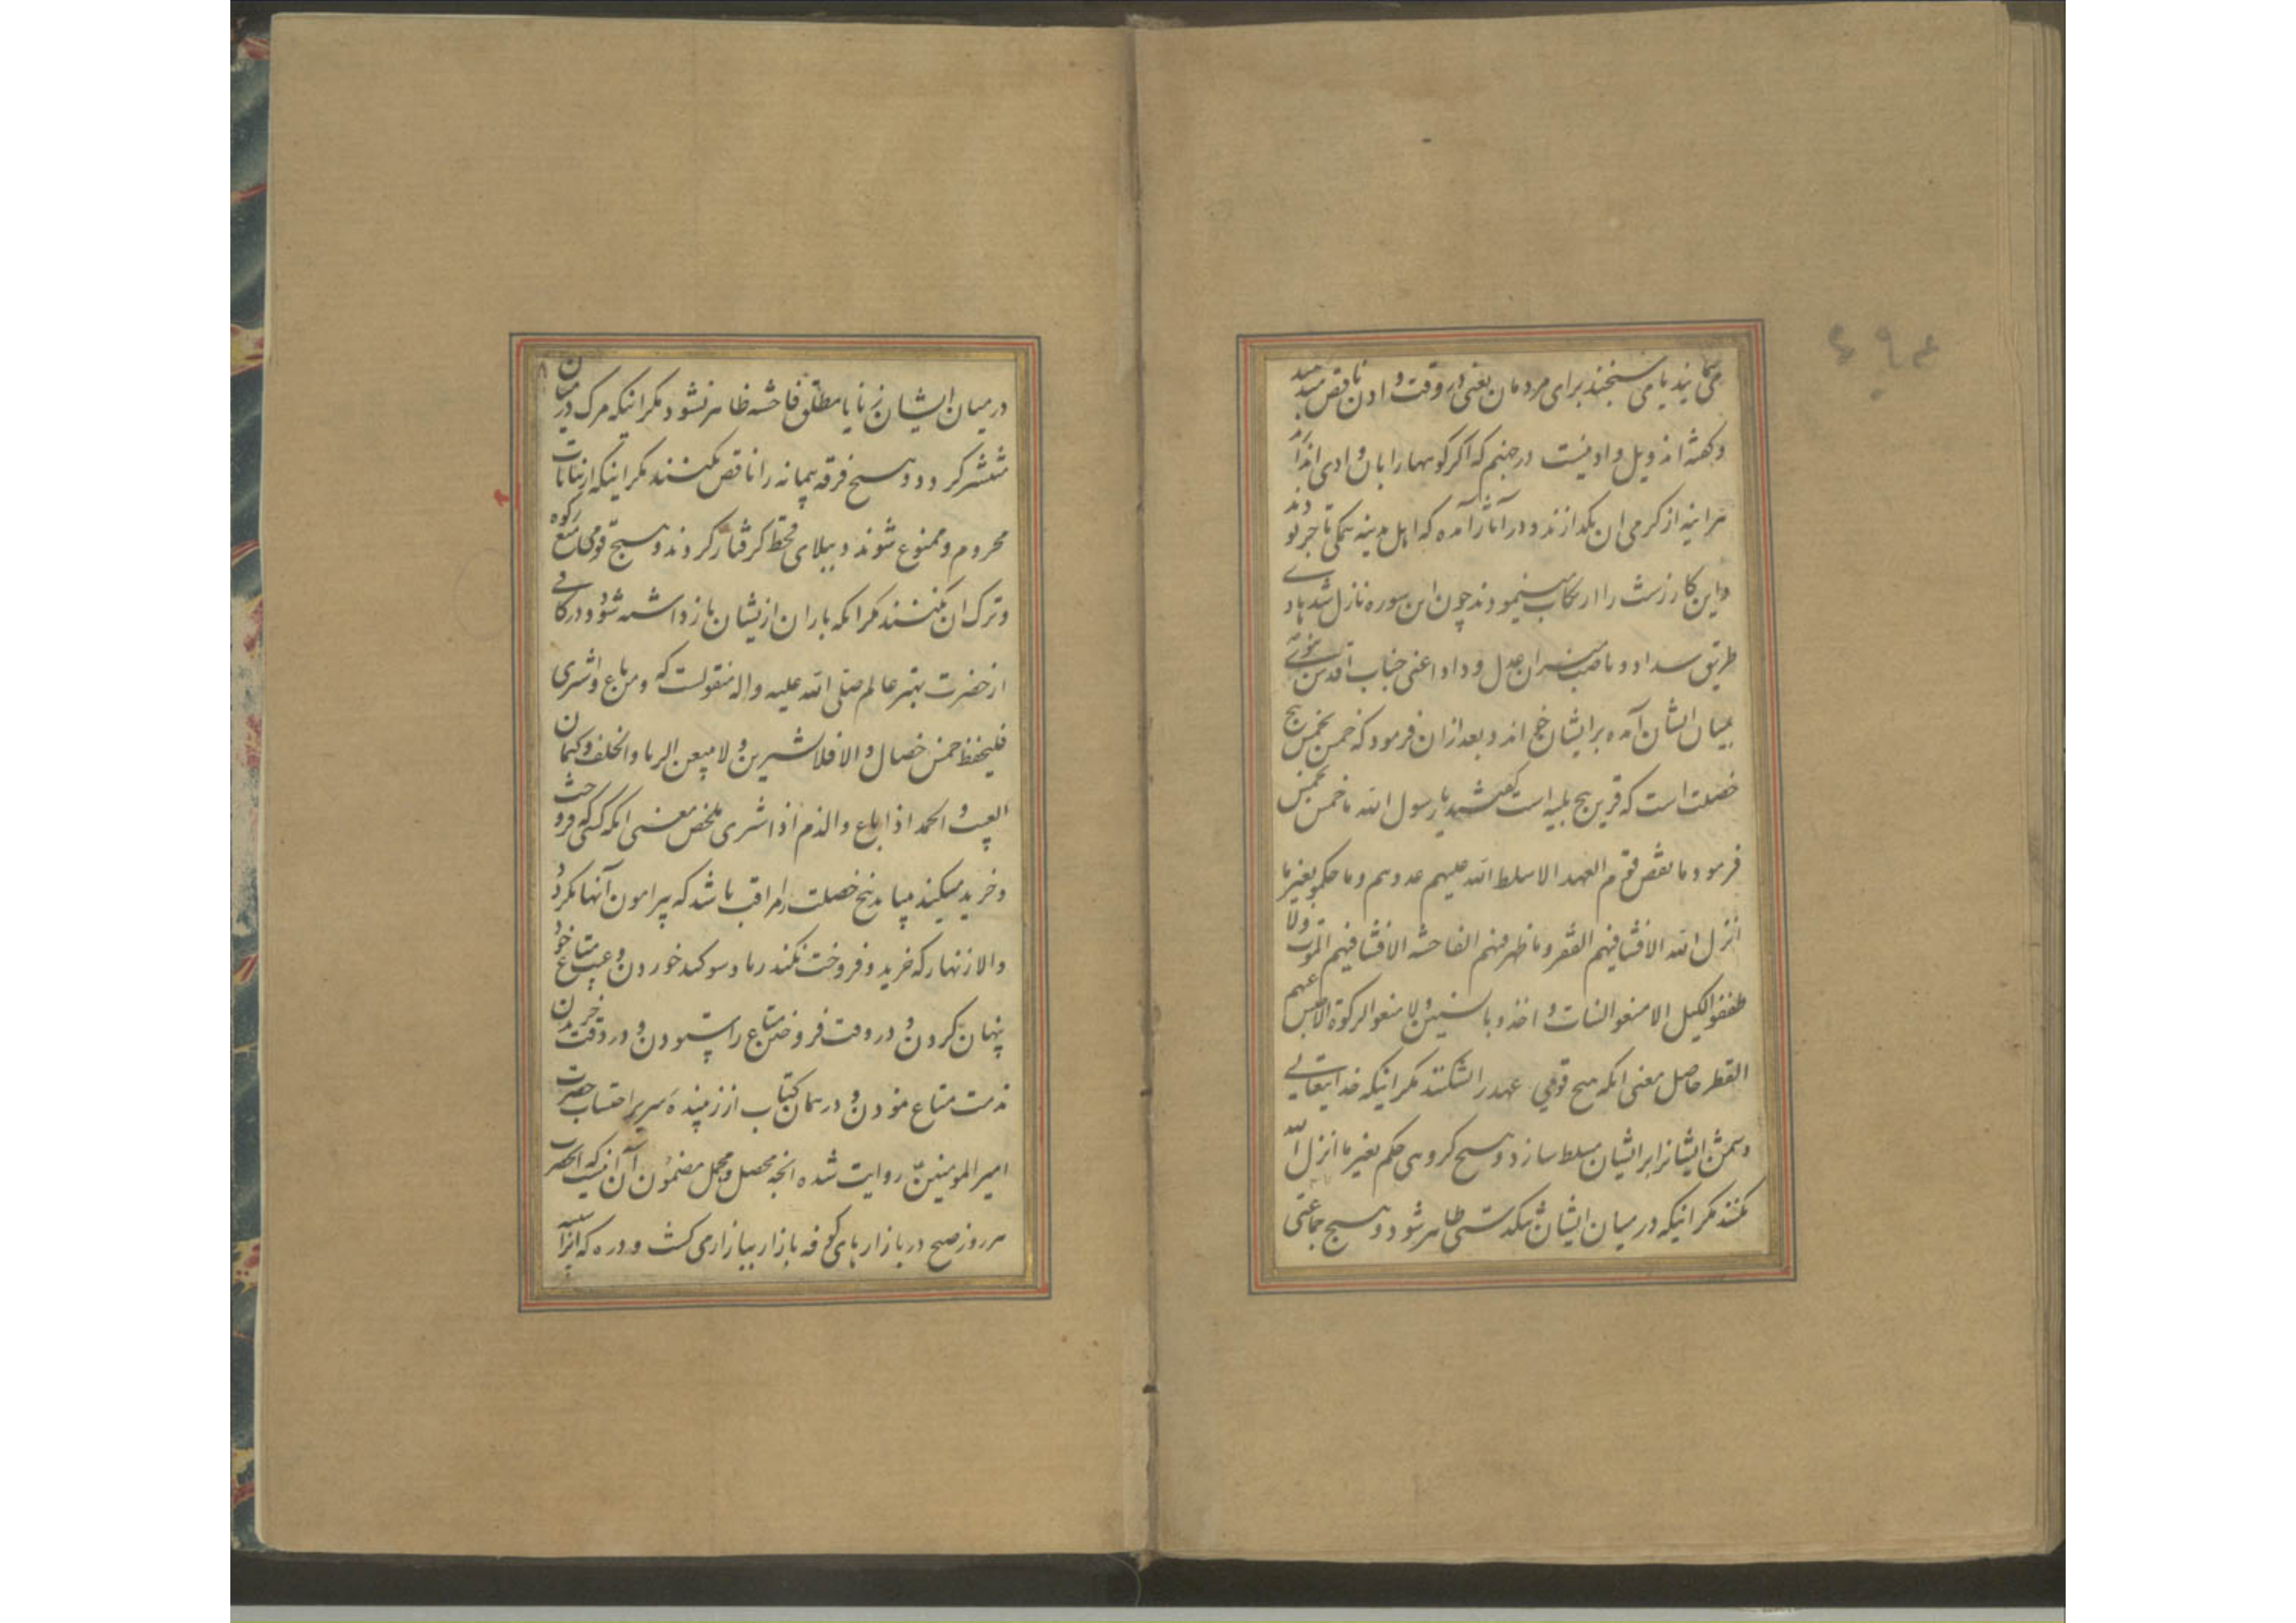 می‌پیمایند یا می سنجند برای مردمان یعنی در وقت دادن ناقص میدهند
و گفته اند ویل وادیست در جهنم که اکر کوهها را بان وادی اندازند
هراینه از کرمی ان بکدازند و در آثار آمده که اهل مدینه همکی تاجر بودند
و این کار زشت را ارتکاب مینمودند چون این سوره نازل شد هادی
طریق سداد و ناصب میزان عدل و داد اعنی جناب اقدس نبوی
بمیان ایشان آمده بر ایشان خواند و بعد ازان فرمود که خمس بخمس پنج
خصلت است که قرین پنج بلیه است گفتند یا رسول الله ما خمس بخمس
فرمود ما نقض قوم العهد الا سلط الله علیهم عدوهم و ما حکموا بغیر ما
انزل الله الا فشا فیهم الفقر و ما ظهر فیهم الفاحشه الا فشا فیهم الموت و لا
طففوا الکیل الا منعوا النبات و اخذوا بالسنین و لا منعوا الزکوة الا حبس عنهم
القطر حاصل معنی انکه هیچ قومی عهد را نشکنند مکر اینکه خدایتعالی
دشمن ایشانرا بر ایشان مسلط سازد و هیچ کروهی حکم بغیر ما انزل الله
نکنند مکر اینکه در میان ایشان تنکدستی ظاهر شود و هیچ جماعتی
در میان ایشان زنا یا مطلق فاحشه ظاهر نشود مکر اینکه مرک در میان
منتشر کردد و هیچ فرقه پیمانه را ناقص نکنند مکر اینکه از نباتات
محروم و ممنوع شوند و ببلای قحط کرفتار کردند و هیچ قومی منع زکوه
و ترک ان نکنند مکر انکه باران ازیشان بازداشته شود و در کافی
از حضرت بهتر عالم صلی الله علیه و اله منقولست که و من باع و اشتری
فلیحفظ خمس خصال و الا فلا یشترین و لا یبیعن الربا و الحلف و کتمان
العیب و الحمد اذا باع و الذم اذا اشتری ملخص معنی انکه کسی که فروخت
و خرید میکند میباید پنج خصلت را مراقب باشد که پیرامون آنها نکردد
و الا زنهار که خرید و فروخت نکند ربا و سوکند خوردن و عیب متاع خود
پنهان کردن و در وقت فروختن متاع را ستودن و در وقت خریدن
مذمت متاع نمودن و در همان کتاب از زیبنده سریر احتساب حضرت
امیر المومنین روایت شده انچه محصل و مجمل مضمون آن اینست که انحضرت
هر روز صبح در بازارهای کوفه بازار ببازار می کشت و دره که انرا